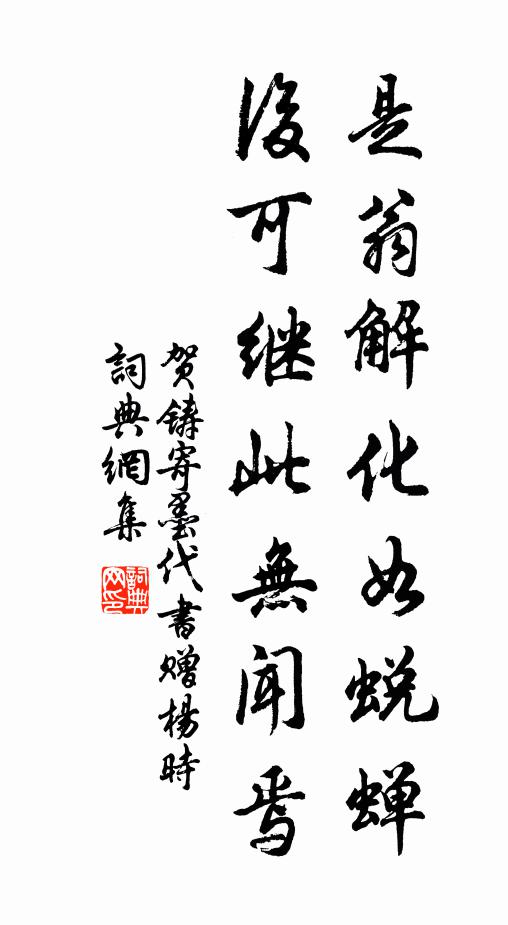 是翁解化如蜕蝉
後可继此無闻焉
贺铸寄墨代書赠楊時
詞典網集
詞典网印